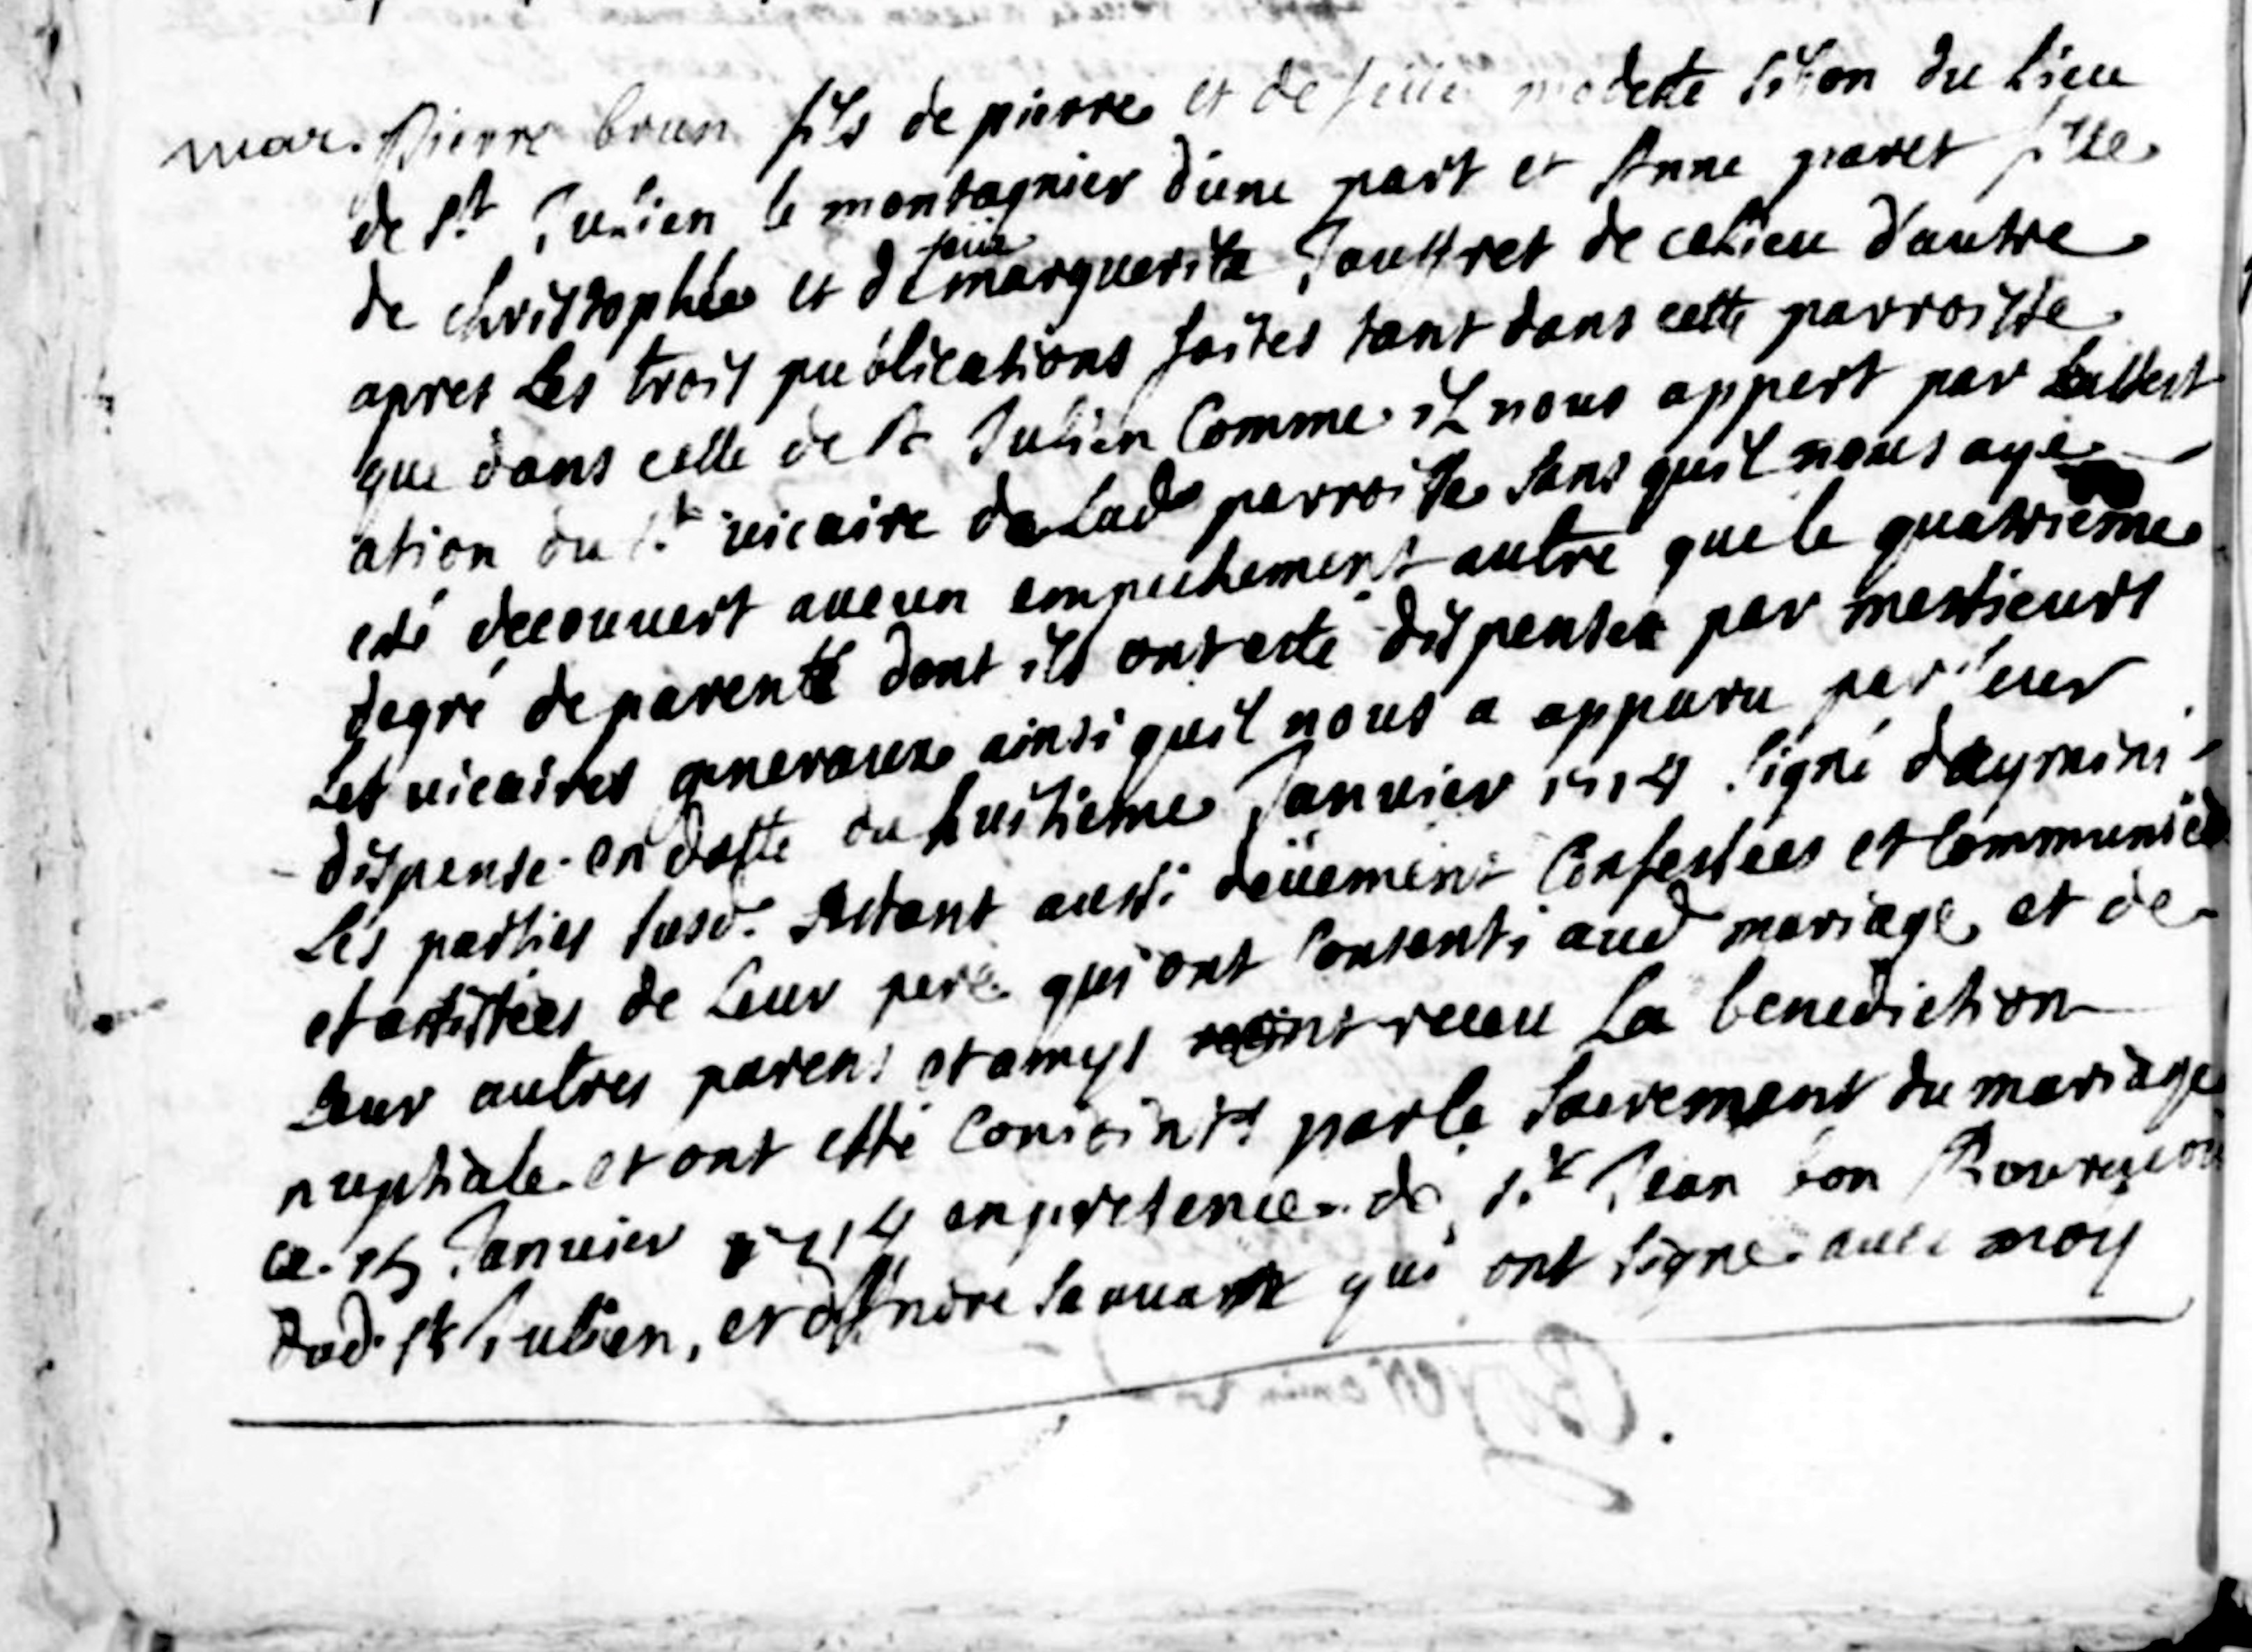 mar. Pierre brun fils de pierre et de feüe modeste silon du lieu
de St Julien le montagnier d'une part et Anne paret fille
de christophle et de feüe marguerite Jauffret de ce lieu d'autre
apres Les trois publications faites tant dans cette parroisse
que dans celle de St Julien Comme il nous appert par Lattest
ation du Sr vicaire de Lade parroisse sans quil nous aye
esté decouvert aucun empechement autre que le quatrieme
degré de parenté dont ils ont esté dispensés par messieurs
Les vicaires generaux ainsi quil nous a apparu par leur
dispense en datte du huitieme Janvier 1714 signé
Les parties susd. Estant aussi deüement Confessées et Communiées
et assistées de Leur pere qui ont Consenti aud mariage et de
Leur autres parens et amys ont receu La benediction
nuptiale et ont esté Conjoints par le sacrement du mariage
ce 15 Janvier 1714 en presence de Sr Jean
dud. St Julien, et d'Andre qui ont signe avec moy